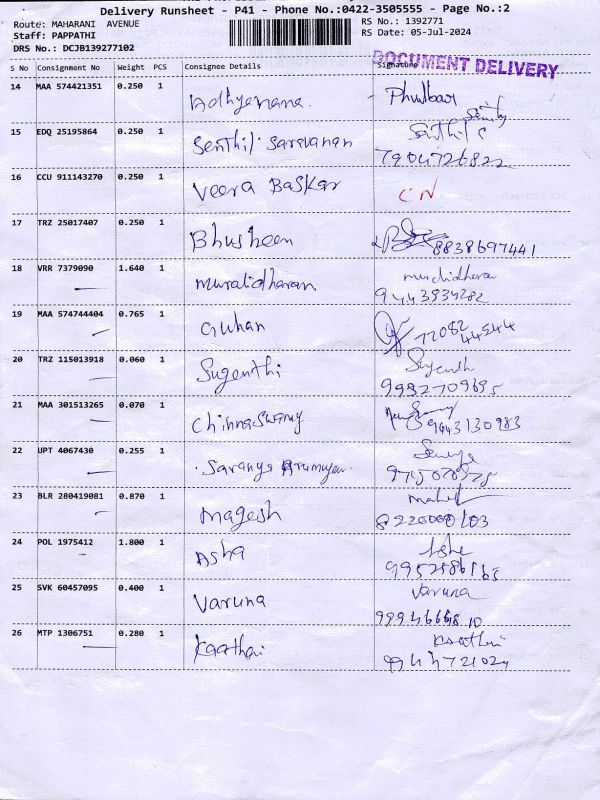 Delivery Runsheet - P41 - Phone No.:0422-3505555 - Page No.:2
Route: MAHARANI AVENUE
RS No.: 1392771
Staff: PAPPATHI
RS Date: 05-Jul-2024
DRS No.: DCJB139277102
DOCUMENT DELIVERY
S No Consignment No Weight PCS Consignee Details Signature
14 MAA 574421351 0.250 1 Phulbari
15 EDQ 25195864 0.250 1 Senthil Saravanan Senthil S
16 CCU 911143270 0.250 1 Veera Baskar CN
17 TRZ 25017407 0.250 1 Bhusheen 8838697441
18 VRR 7379090 1.640 1 Muralidharan Muralidharan
19 MAA 574744404 0.765 1 Guhan 72082 44544
20 TRZ 115013918 0.060 1 Sugenthi
21 MAA 301513265 0.070 1 Chinnaswamy 9443130983
22 UPT 4067430 0.255 1 Saranya Arumugam
23 BLR 280419081 0.870 1 Magesh
24 POL 1975412 1.800 1 Asha Asha
25 SVK 60457095 0.400 1 Varuna Varuna
26 MTP 1306751 0.280 1